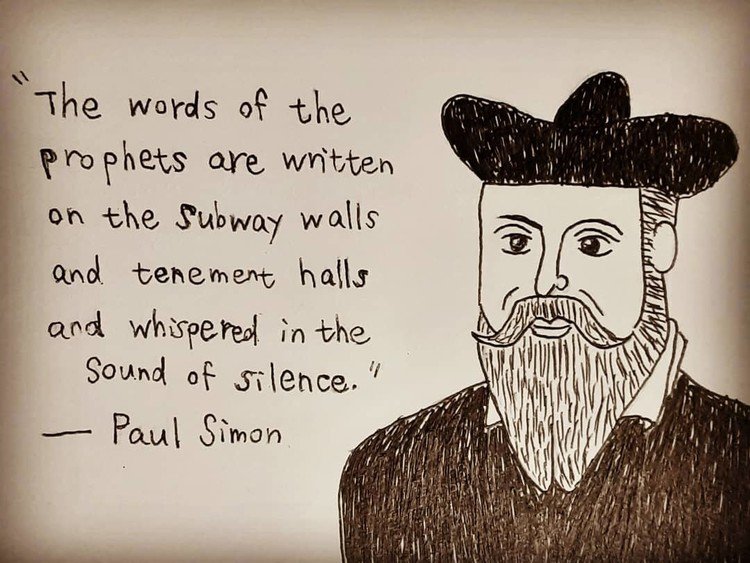 "The words of the
prophets are written
on the subway walls
and tenement halls
and whispered in the
sound of silence."
— Paul Simon